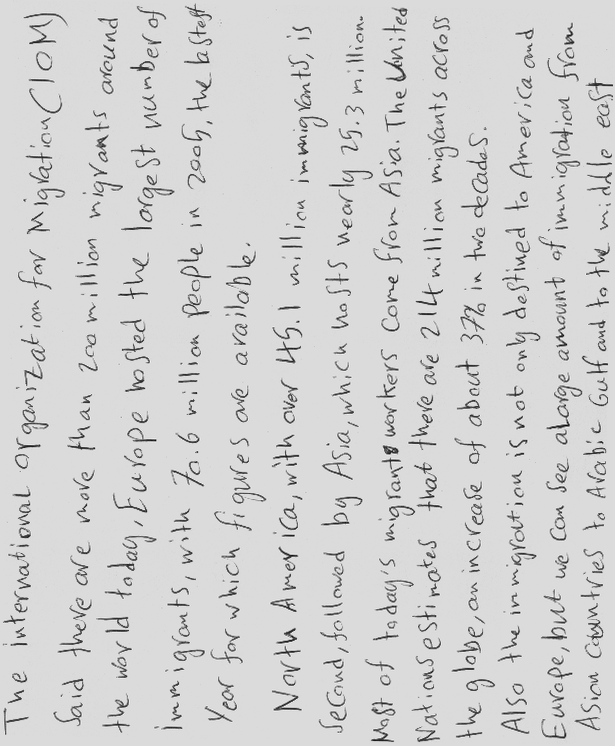 The international organization for Migration (IOM)
Said there are more than 200 million migrants around
the world today, Europe hosted the largest number of
immigrants, with 70.6 million people in 2005, the lastest
Year for which figures are available.
North America, with over 45.1 million immigrants, is
Second, followed by Asia, which hosts nearly 25.3 million.
Most of today's migrants workers come from Asia. The United
Nations estimates that there are 214 million migrants across
the globe, an increase of about 37% in two decades.
Also the immigration is not only destined to America and
Europe, but we can see a large amount of immigration from
Asian countries to Arabic Gulf and to the middle east